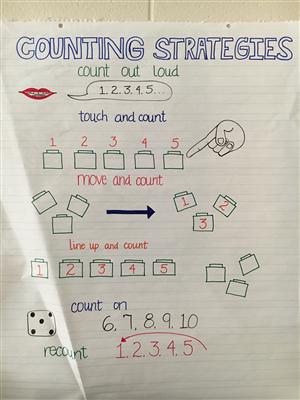 COUNTING STRATEGIES
count out loud
1, 2, 3, 4, 5...
touch and count
1 2 3 4 5
move and count
1 2
3
line up and count
1 2 3 4 5
count on
6, 7, 8, 9, 10
recount 1, 2, 3, 4, 5